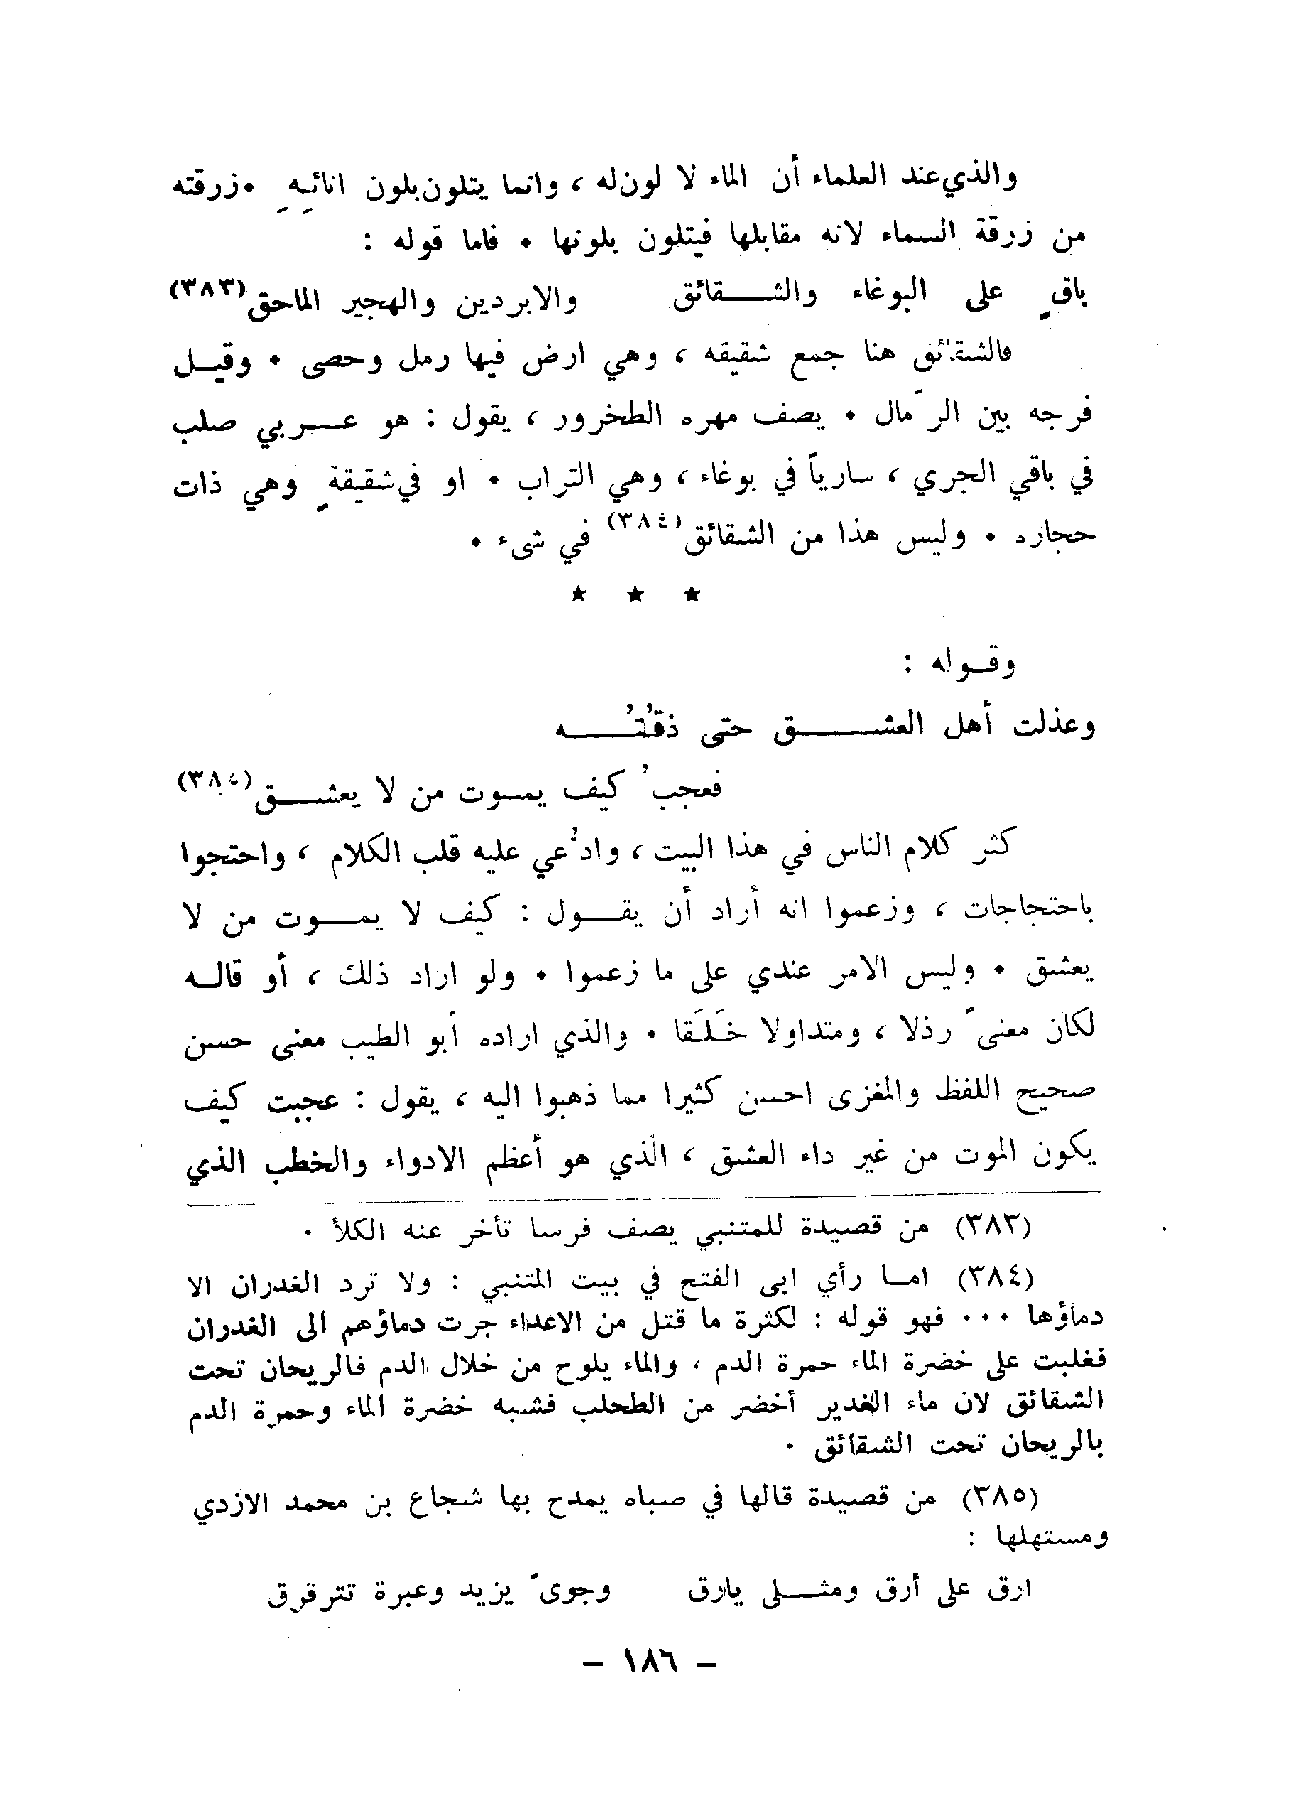 والذي عند العلماء أن الماء لا لون له ، وانما يتلون بلون انائِهِ • زرقته
من زرقة السماء لانه مقابلها فيتلون بلونها • فاما قوله :
باقٍ على البوغاء والشـــقائق والابردين والهجير الماحق(٣٨٣)
فالشقائق هنا جمع شقيقه ، وهي ارض فيها رمل وحصى • وقيـل
فرجه بين الرّمال • يصف مهره الطخرور ، يقول : هو عـــربي صلب
في باقي الجري ، سارياً في بوغاء ، وهي التراب • او في شقيقةٍ وهي ذات
حجاره • وليس هذا من الشقائق(٣٨٤) في شىء •
★ ★ ★
وقـوله :
وعذلت أهل العشـــــق حتى ذقْتُـــــه
فعجبْ كيف يمـوت من لا يعشـــق(٣٨٥)
كثر كلام الناس في هذا البيت ، وادُعي عليه قلب الكلام ، واحتجوا
باحتجاجات ، وزعموا انه أراد أن يقـــول : كيف لا يمـــوت من لا
يعشق • وليس الامر عندي على ما زعموا • ولو اراد ذلك ، أو قالـه
لكان معنىً رذلا ، ومتداولا خَلَقا • والذي اراده أبو الطيب معنى حسن
صحيح اللفظ والمغزى احسن كثيرا مما ذهبوا اليه ، يقول : عجبت كيف
يكون الموت من غير داء العشق ، الذي هو أعظم الادواء والخطب الذي
(٣٨٣) من قصيدة للمتنبي يصف فرسا تأخر عنه الكلأ •
(٣٨٤) امـا رأي ابى الفتح في بيت المتنبي : ولا ترد الغدران الا
دماؤها ••• فهو قوله : لكثرة ما قتل من الاعداء جرت دماؤهم الى الغدران
فغلبت على خضرة الماء حمرة الدم ، والماء يلوح من خلال الدم فالريحان تحت
الشقائق لان ماء الغدير أخضر من الطحلب فشبه خضرة الماء وحمرة الدم
بالريحان تحت الشقائق •
(٣٨٥) من قصيدة قالها في صباه يمدح بها شجاع بن محمد الازدي
ومستهلها :
ارق على أرق ومثـــلى يارق وجوىً يزيد وعبرة تترقرق
– ١٨٦ –